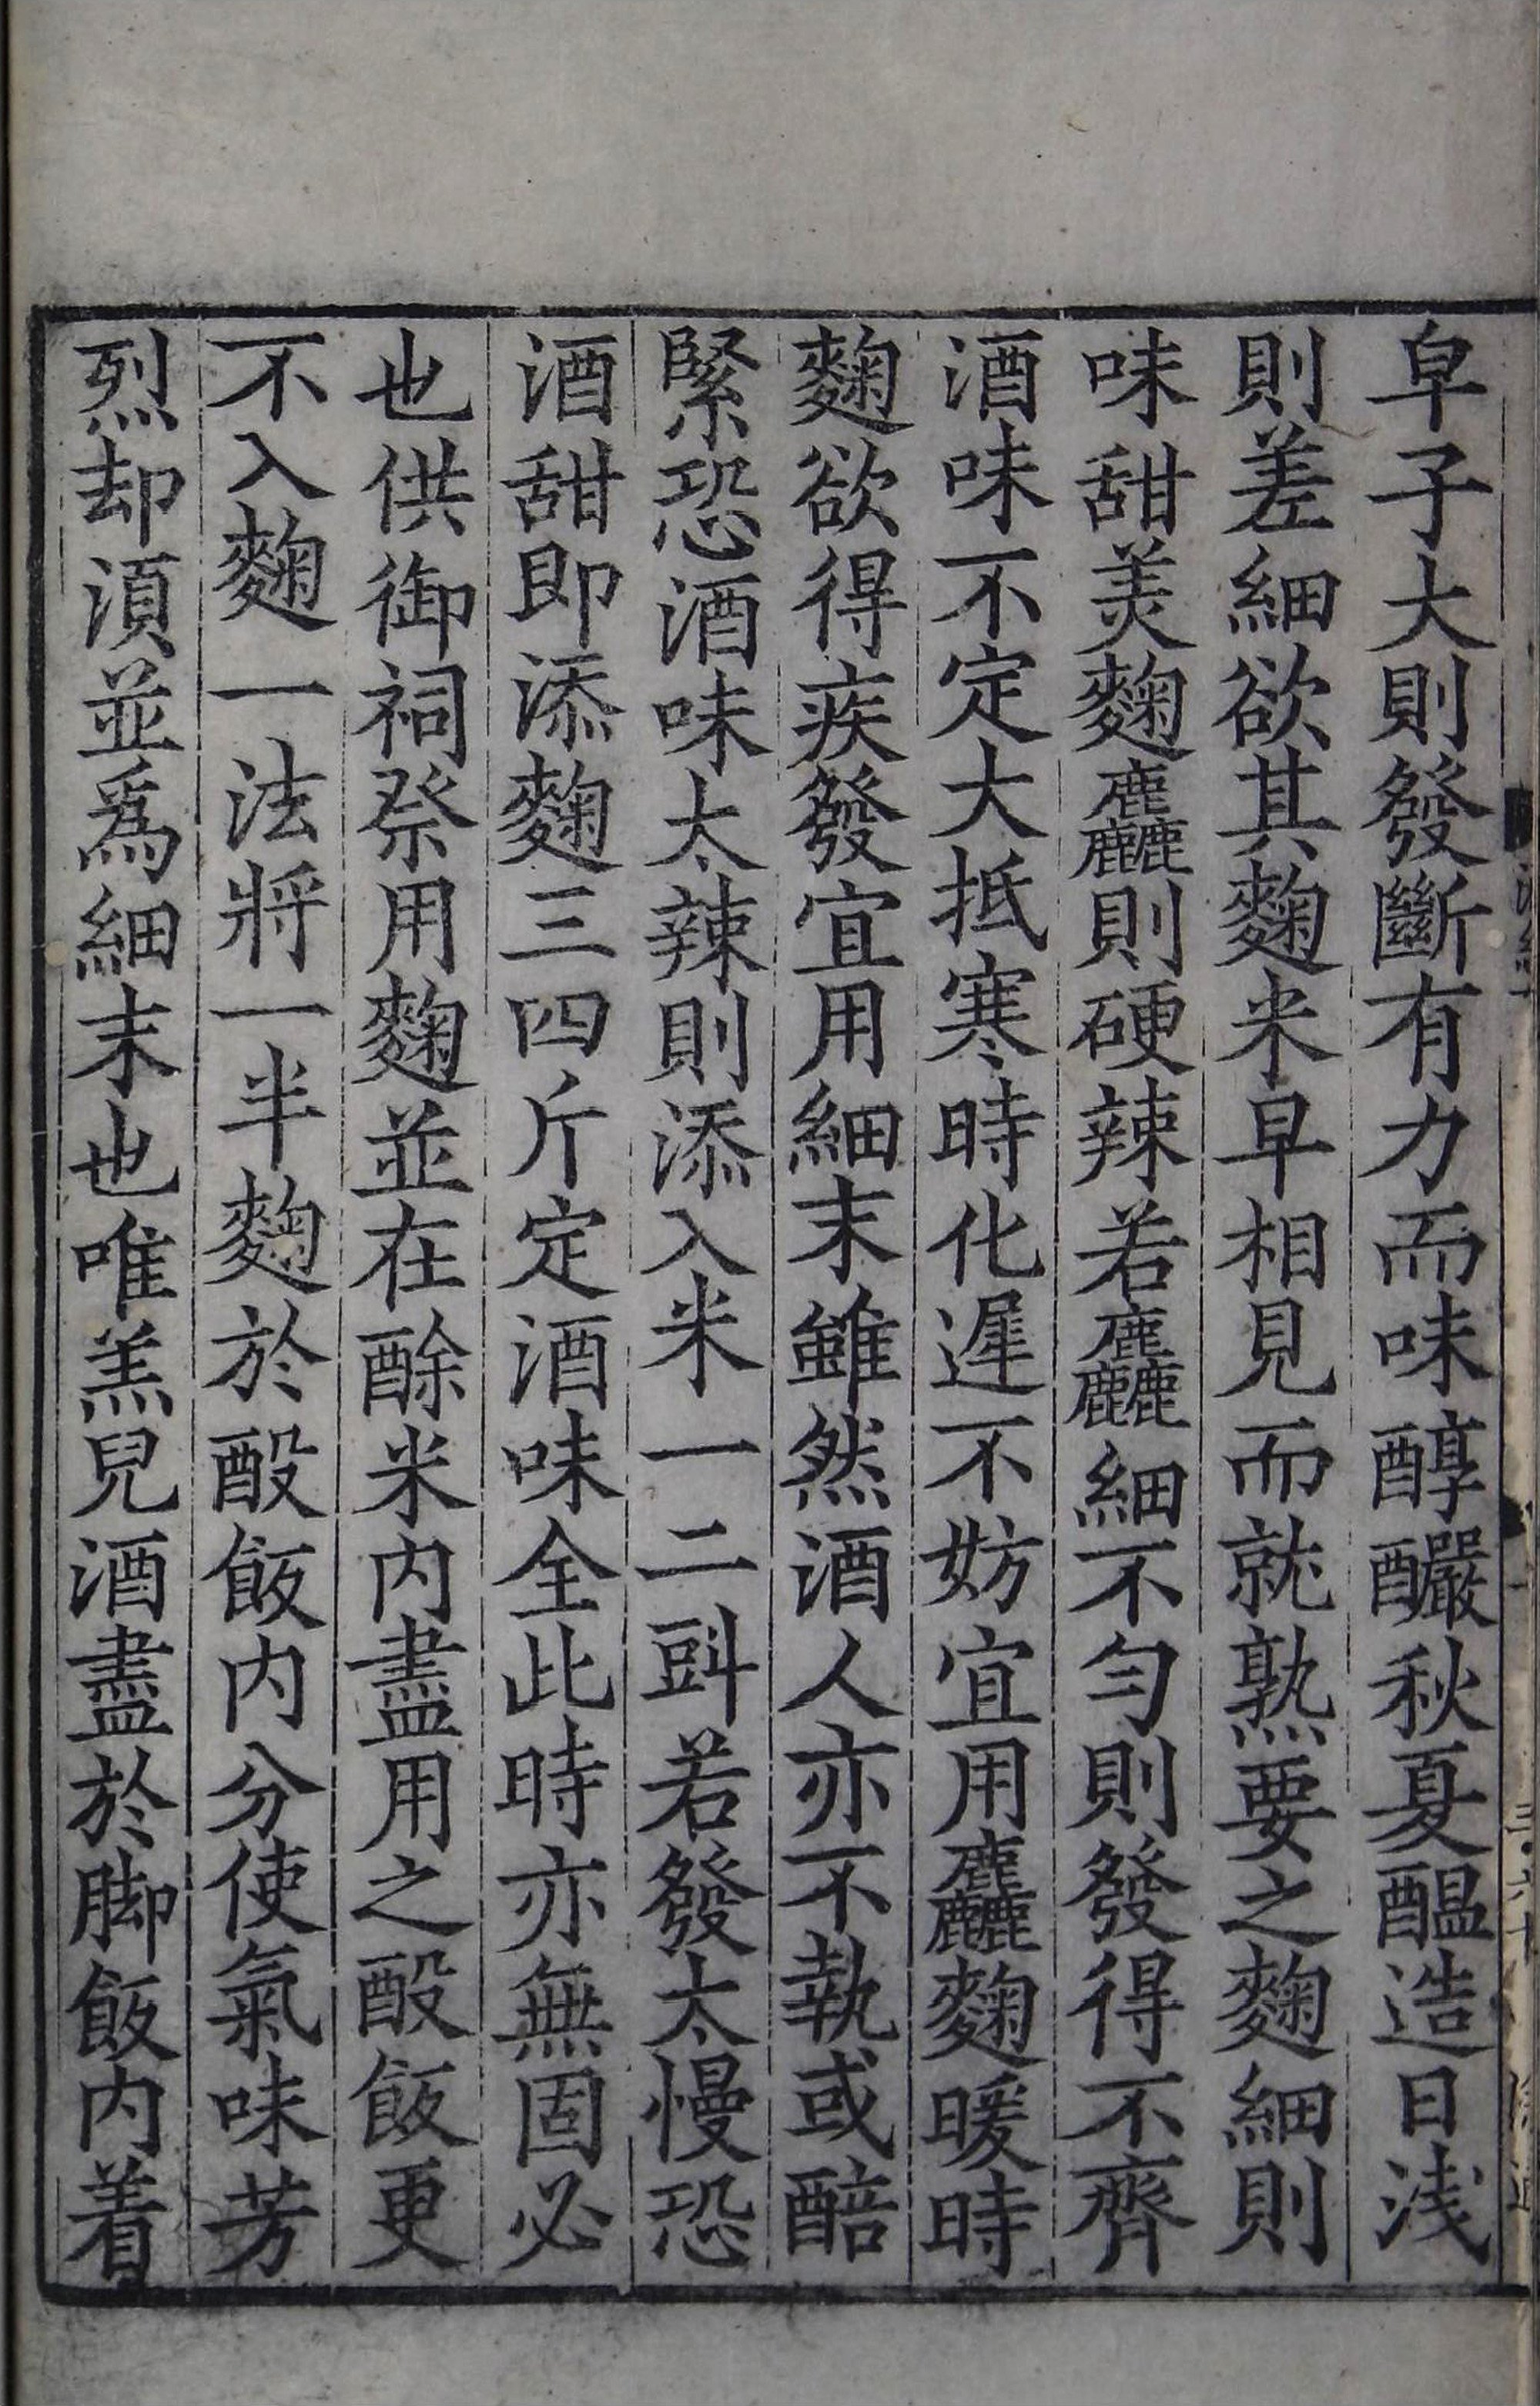 皁子大則發斷有力而味醇釅秋夏醖造日浅
則差細欲其麴米早相見而就熟要之麴細則
味甜羙麴麤則硬辣若麤細不匀則發得不齊
酒味不定大抵寒時化遲不妨宜用麤麴暖時
麴欲得疾發宜用細末雖然酒人亦不執或醅
緊恐酒味太辣則添入米一二㪷若發太慢恐
酒甜即添麴三四斤定酒味全此時亦無固必
也供御祠祭用麴並在酴米内盡用之酘飯更
不入麴一法將一半麴於酘飯内分使氣味芳
烈却湏並爲細末也唯羔兒酒盡於脚飯内着